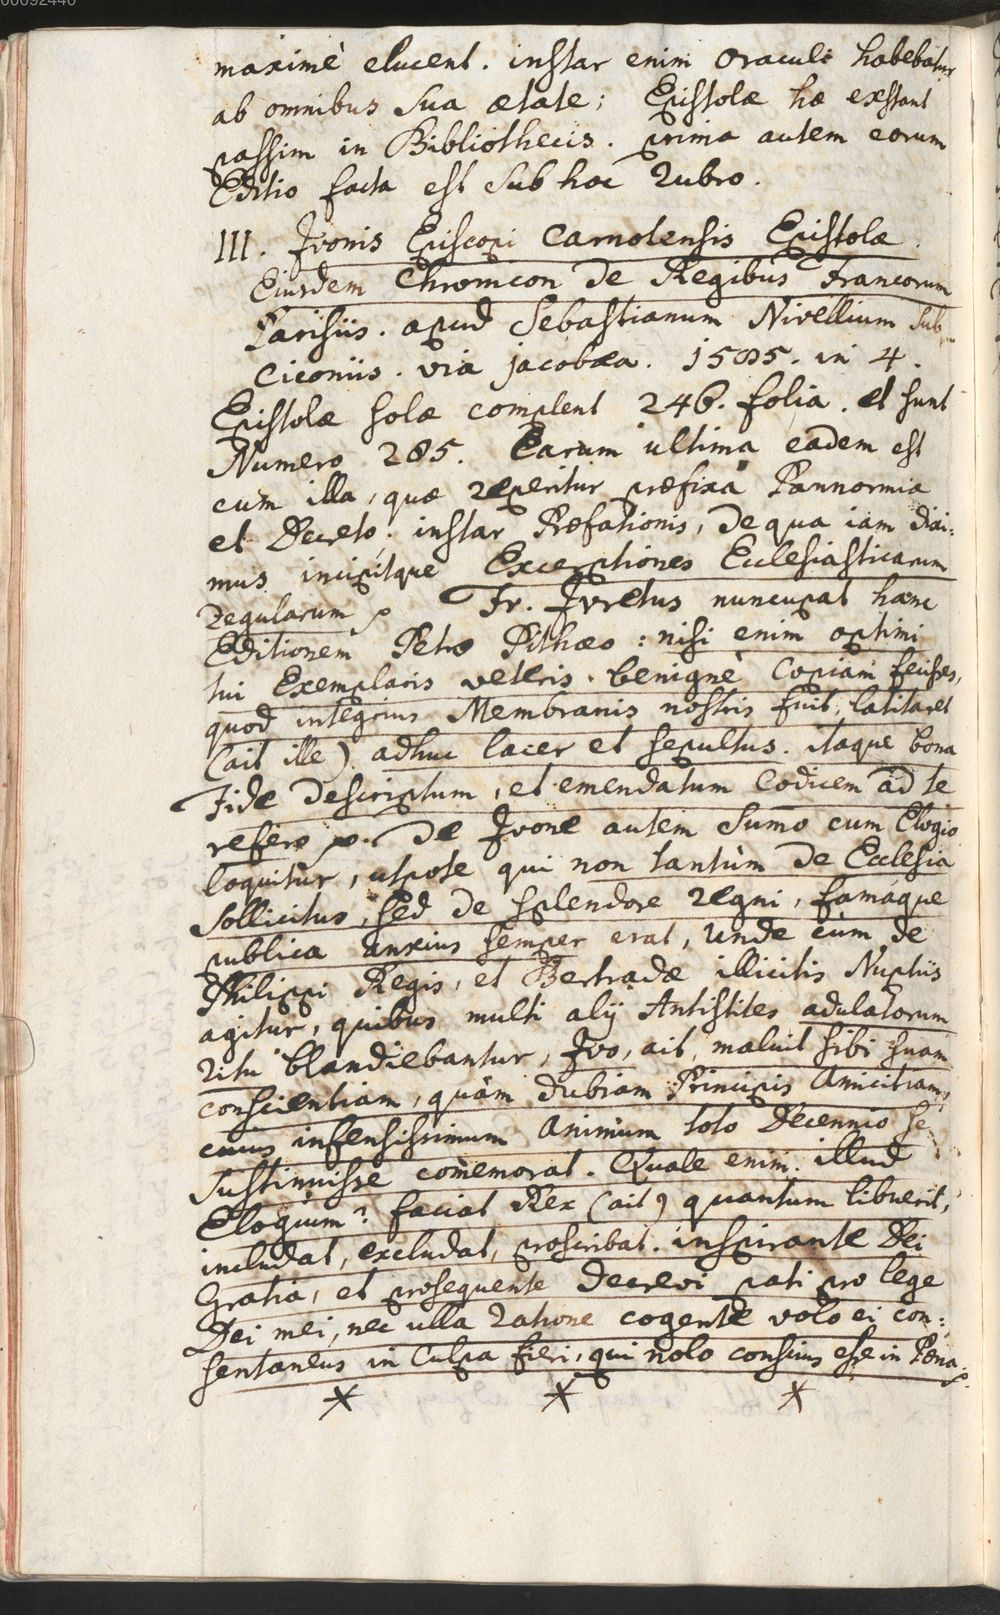 00092440
maximè elucent. instar enim Oraculi habebatur
ab omnibus sua ætate; Epistolæ hæ exstant
passim in Bibliothecis. prima autem eorum
Editio facta est sub hoc Rubro.
III. Ivonis Episcopi Carnotensis Epistolæ.
Eiusdem Chronicon de Regibus Francorum
Parisiis. apud Sebastianum Nivellium sub
Ciconiis. via jacobæa. 1585. in 4.
Epistolæ solæ complent 246. folia. et sunt
Numero 285. Earum ultima eadem est
cum illa, quæ reperitur præfixa Pannormia
et Decreto. instar Præfationis, de qua iam dixi:
mus incipitque Exceptiones Ecclesiasticarum
regularum p Fr. Juretus nuncupat hanc
Editionem Petro Pithæo: nisi enim optimi
tui Exemplaris veteris benignè Copiam fecisses,
quod integrius Membranis nostris fuit, latitaret
(ait ille) adhuc lacer et sepultus. itaque bona
Fide descriptum, et emendatum Codicem ad te
refero p. De Ivone autem Sumo cum Elogio
loquitur, utpote qui non tantùm de Ecclesia
Sollicitus, sed de splendore regni, famáque
publica anxius semper erat, Unde cùm de
Philippi Regis, et Bertradæ illicitis Nuptiis
agitur, quibus multi alij Antistites adulatorum
ritu blandiebantur, Ivo, ait, maluit sibi suam
conscientiam, quàm dubiam Principis Amicitiam,
cuius infensissimum Animum toto Decennio se
Sustinuisse comemorat. Quale enim illud
Eloquium? faciat Rex (ait) quantum libuerit,
includat, excludat, proscribat. inspirante Dei
Gratia, et prosequente decrevi pati pro lege
Dei mei, nec ulla ratione cogente volo ei con:
sentaneus in Culpa fieri, qui nolo consius esse in Pena p.